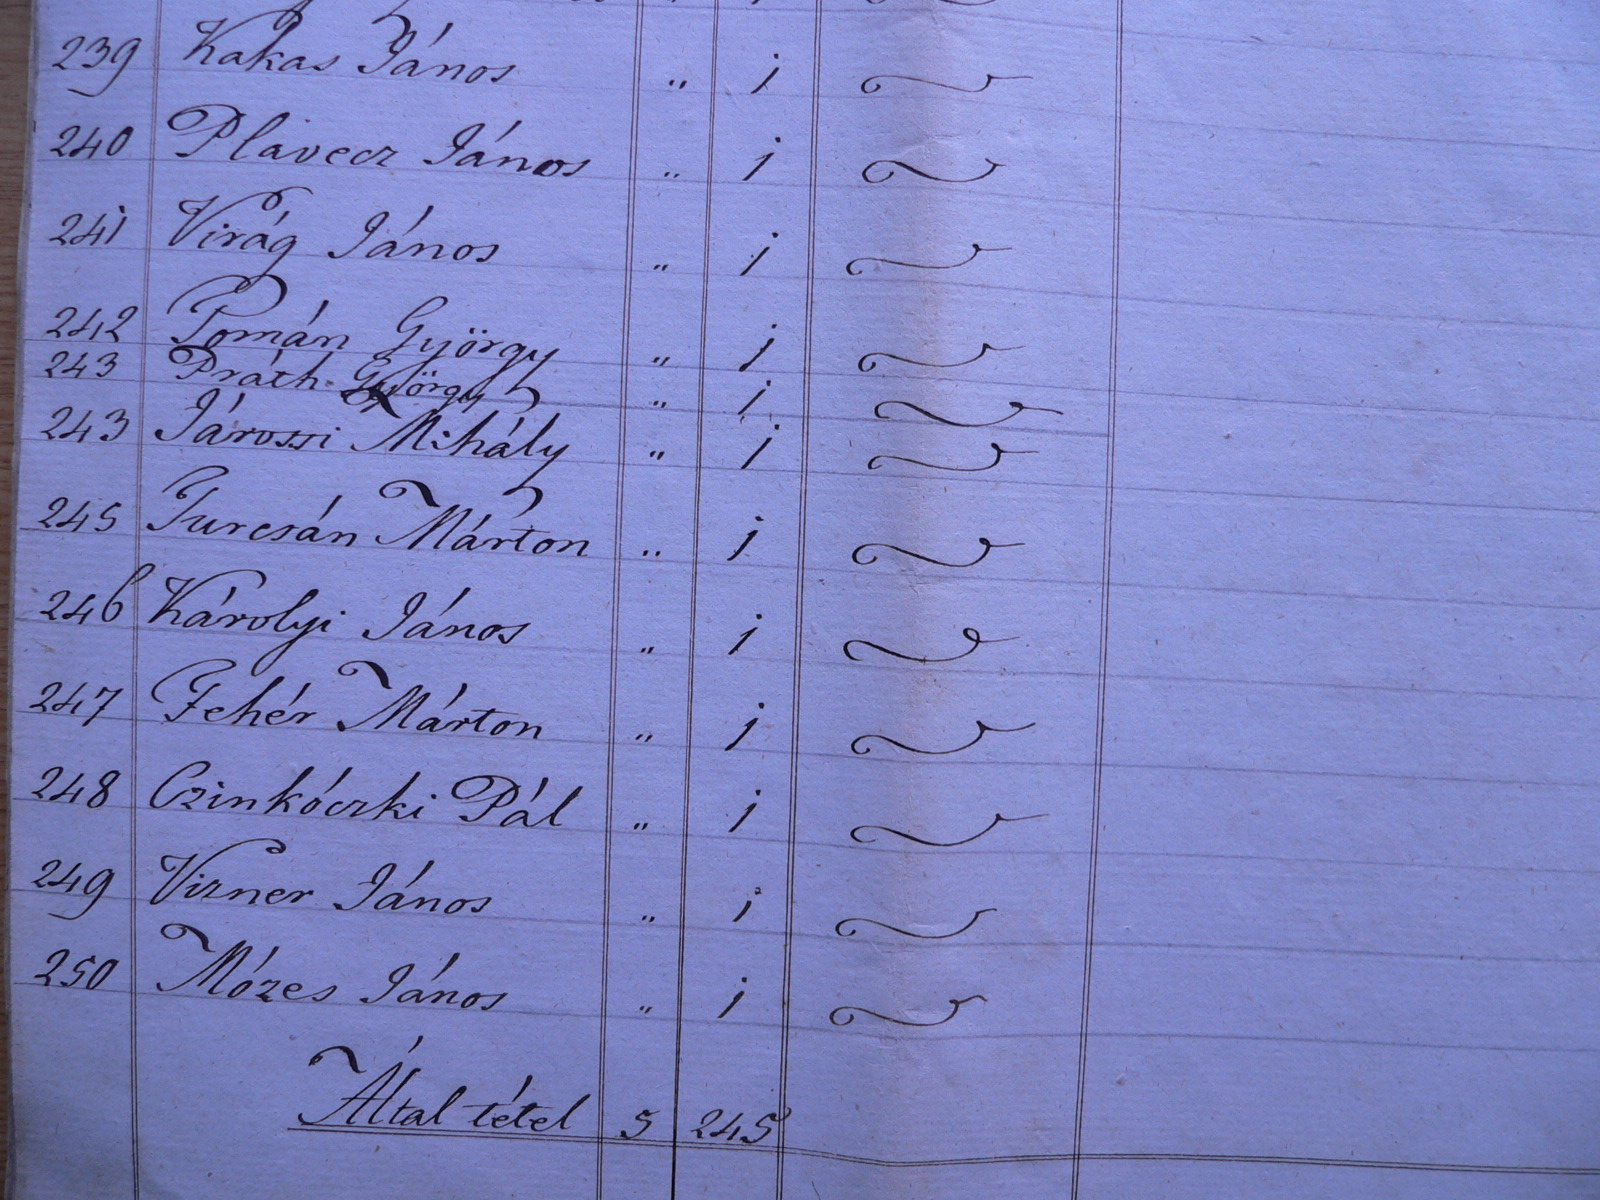 239 Kakas János " 1
240 Plavecz János " 1
241 Virág János " 1
242 Román György " 1
243 Práth György " 1
243 Járossi Mihály " 1
245 Turcsán Márton " 1
246 Károlyi János " 1
247 Fehér Márton " 1
248 Czinkóczki Pál " 1
249 Vizner János " 1
250 Mózes János " 1
Által tétel 5 245